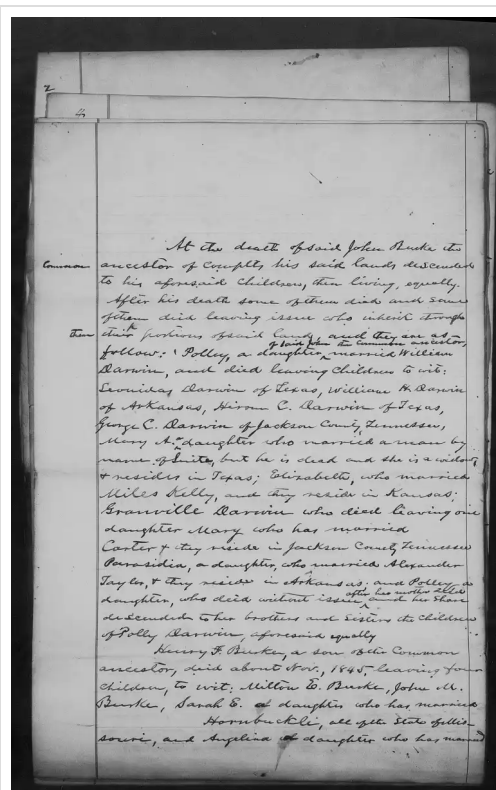 2
4
At the death of said John Burke the
Common ancestor of complts his said lands descended
to his aforesaid children, then living, equally.
After his death some of them died and some
of them died leaving issue who inherit through
them their portions of said land, and they are as
of said John the common ancestor,
follow: Polley, a daughter, married William
Darwin, and died leaving children to wit:
Leonidas Darwin of Texas, William H. Darwin
of Arkansas, Hiram C. Darwin of Texas,
George C. Darwin of Jackson County, Tennessee,
Mary A. a daughter who married a man by
name of Suite, but he is dead and she is a widow
& resides in Texas; Elizabeth, who married
Miles Kelly, and they reside in Kansas;
Granville Darwin who died leaving one
daughter Mary who has married
Carter & they reside in Jackson County Tennessee
Parasidia, a daughter, who married Alexander
Taylor, & they reside in Arkansas, and Polley a
after her mother died
daughter, who died without issue, and her share
descended to her brothers and sisters the children
of Polly Darwin, aforesaid equally
Henry F. Burke, a son of the Common
ancestor, died about Nov., 1845, leaving four
children, to wit: Milton E. Burke, John M.
Burke, Sarah E. a daughter who has married
Hornbuckle, all of the State of Mis-
souri, and Angelina a daughter who has married